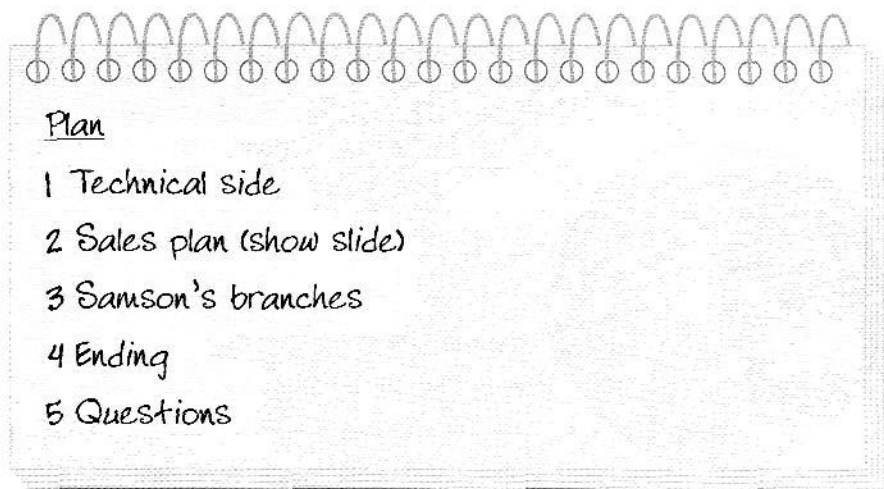 Plan
1 Technical side
2 Sales plan (show slide)
3 Samson's branches
4 Ending
5 Questions